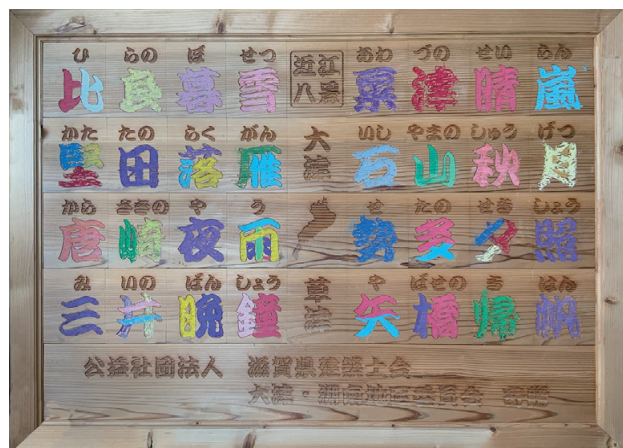 ひ らの ぼ せつ 近江 あわ づの せい らん
比良暮雪 八景 粟津晴嵐
かた たの らく がん 大津 いし やまの しゅう げつ
堅田落雁 石山秋月
から さきの や う せ たの せき しょう
唐崎夜雨 勢多夕照
み いの ばん しょう 草津 や ばせの き はん
三井晩鐘 矢橋帰帆
公益社団法人 滋賀県建築士会
大津・湖南地区委員会 寄贈